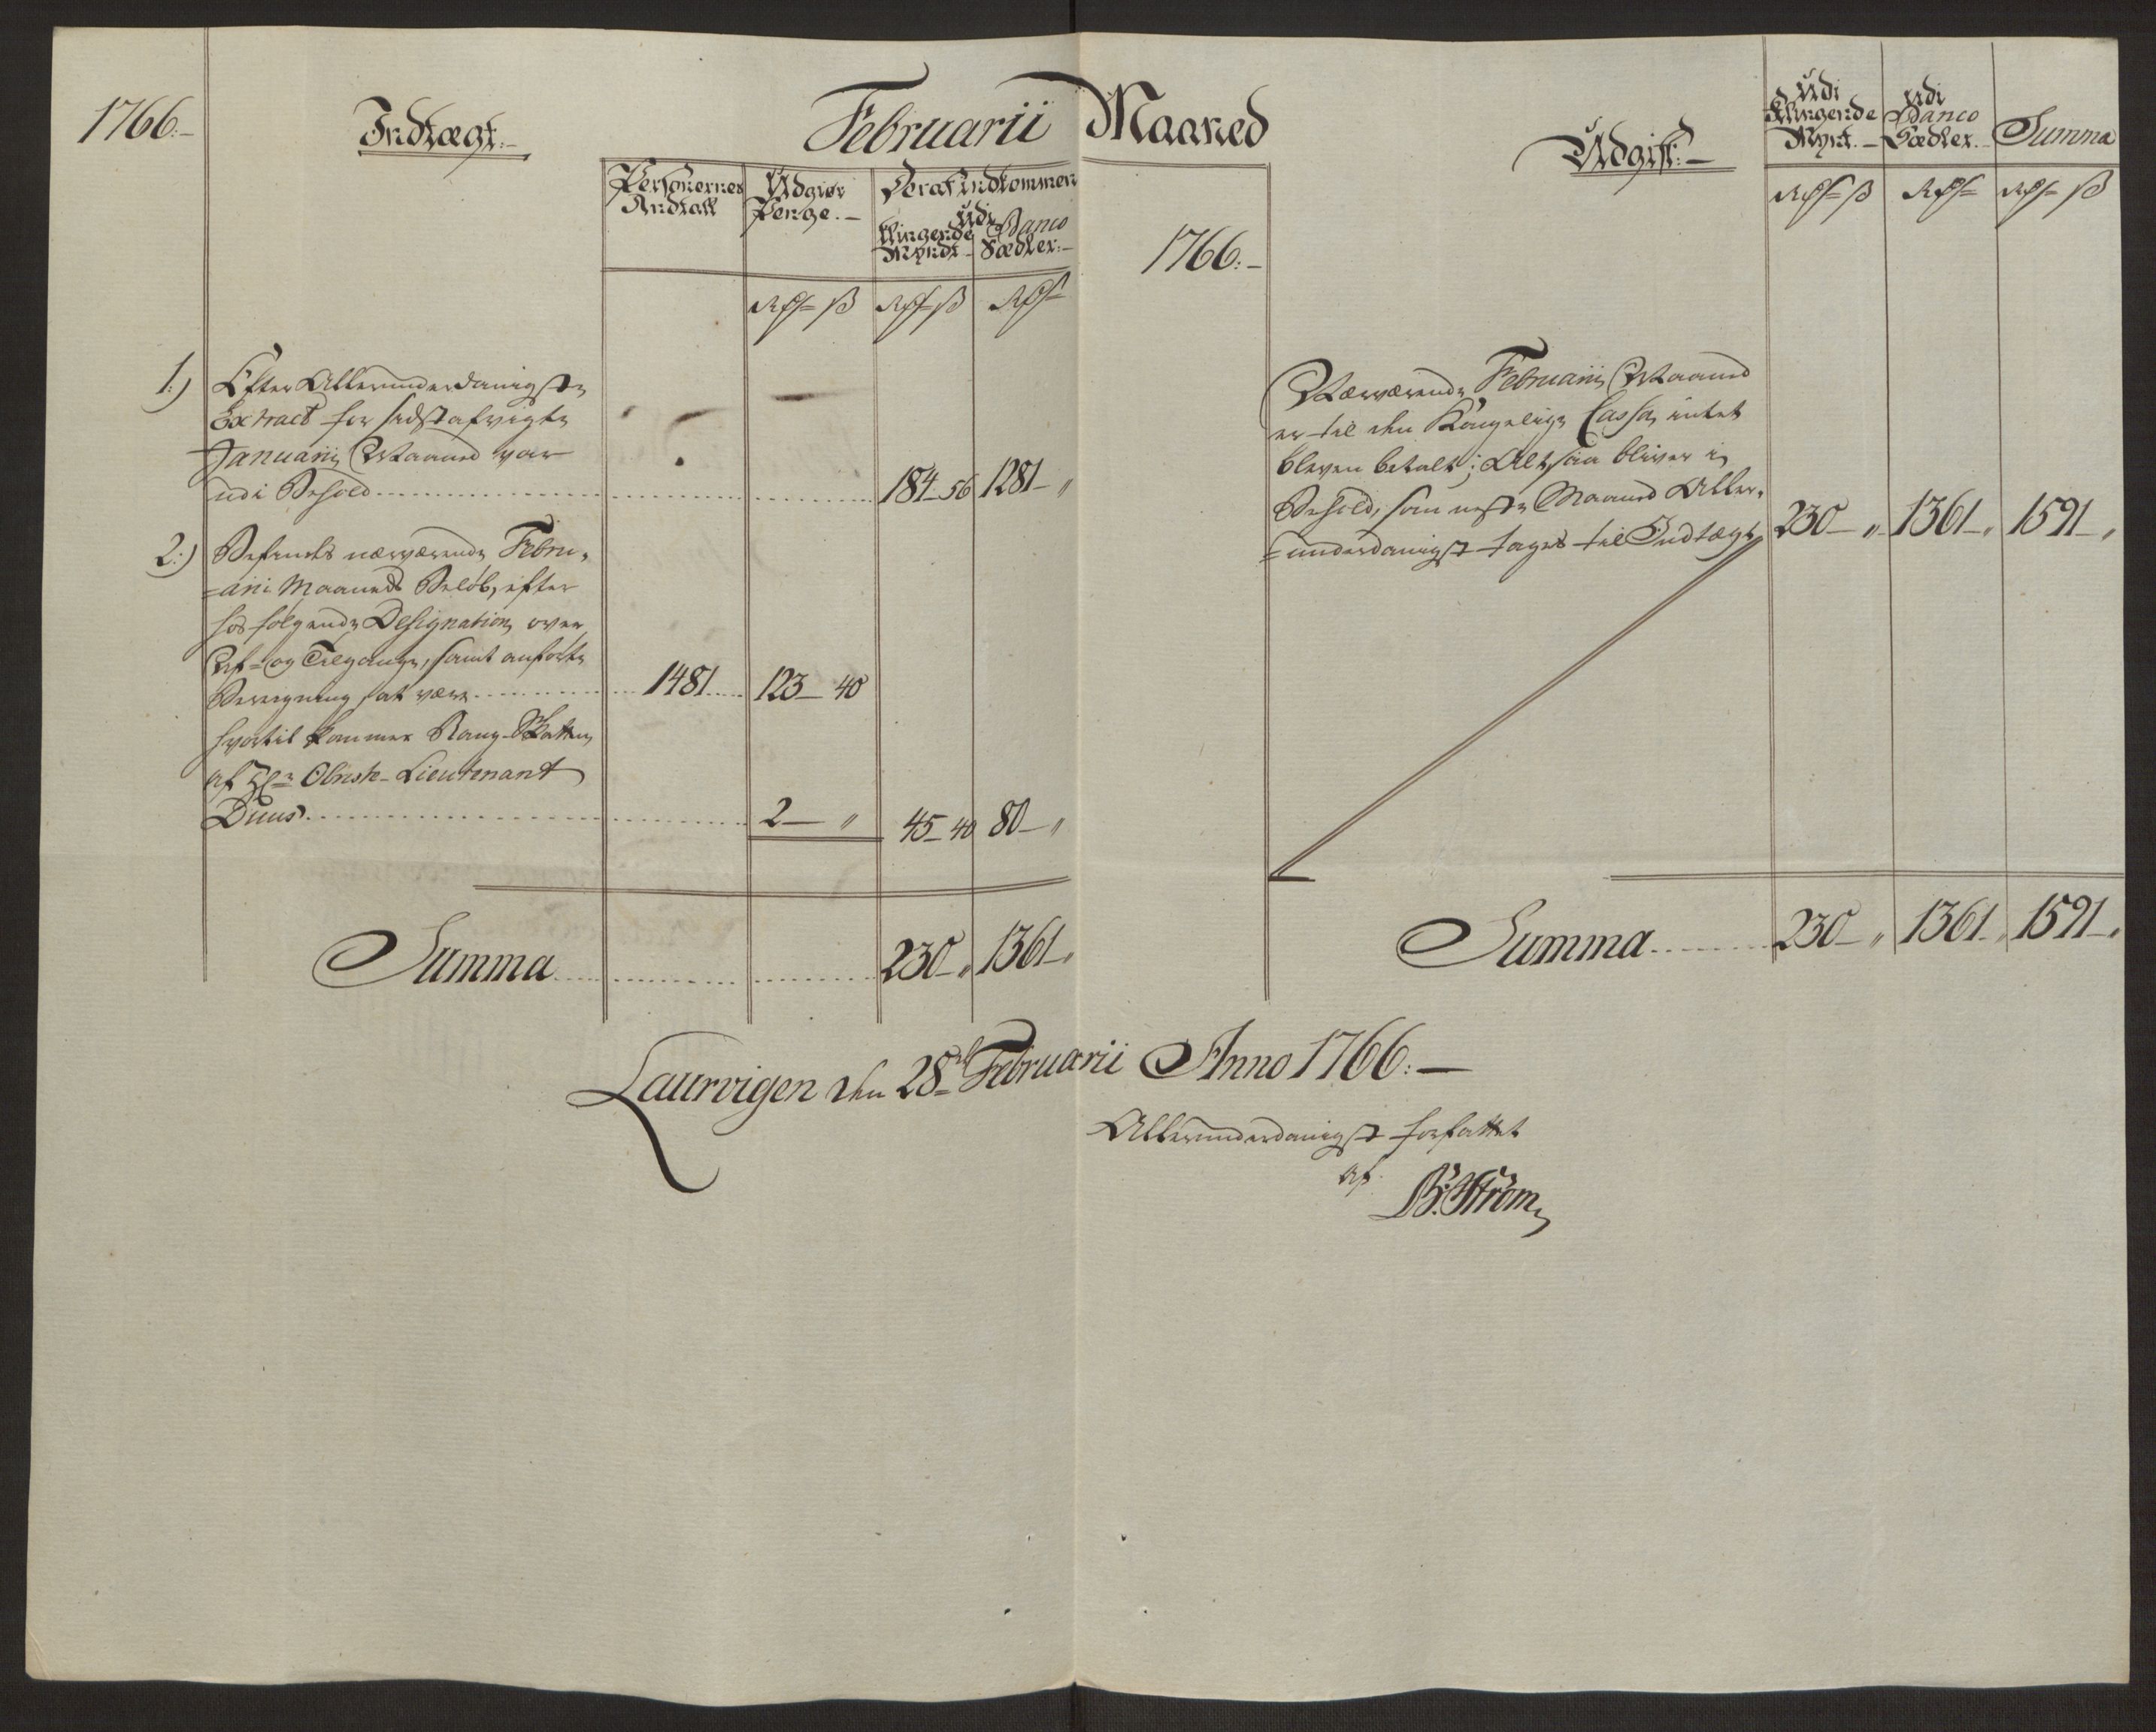 1766.-
Indtægt.-
Februarii Maaned
Personernes Andtall
Udgiør Penge.-
Deraf Indkommen
Udi
Klingende Myndt.-
Banco Sedler.-
Rdr ß
Rdr ß
Rdr
1.) Efter Allerunderdanigste
Extract for sidst afvigte
Januarii Maaned var
udi Behold .......... 184 - 56 1281 - "
2.) Befindes nærværende Febru-
=arii Maaneds Beløb, efter
hosfølgende Designation over
Af- og Tilgange, samt anførte
Beregning at være .......... 1481 .... 123 - 40
hvortil kommer Rang-Skatten
af Hr Obriste-Lieutenant
Duus .......... 2 - " 45 - 40 80 - "
Summa .......... 230 - " 1361 - "
1766.-
Udgift.-
Udi Klingende Mynt.-
Udi Banco Sedler.-
Summa
Rdr ß
Rdr
Rdr ß
Nærværende Februarii Maaned
er til den Kongelige Cassa intet
bleven betalt; Altsaa bliver i
Behold, som neste Maaned Aller-
=underdanigst tages til Indtægt 230 - " 1361 - " 1591 - "
Summa .......... 230 - " 1361 - " 1591 - "
Laurvigen den 28de Februarii Anno 1766.-
Allerunderdanigst forfattet
af
B. Strøm